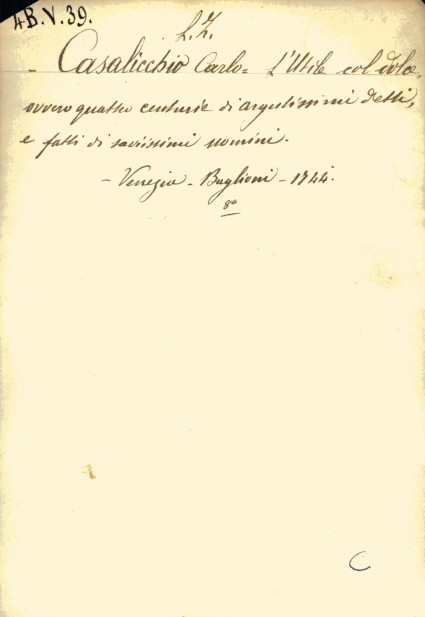 4B.V.39.
L.Z.
- Casalicchio Carlo= L'Utile col dolce,
ovvero quattro centurie di argutissimi detti,
e fatti di saviissimi uomini.
- Venezia - Baglioni - 1744.
8º
C